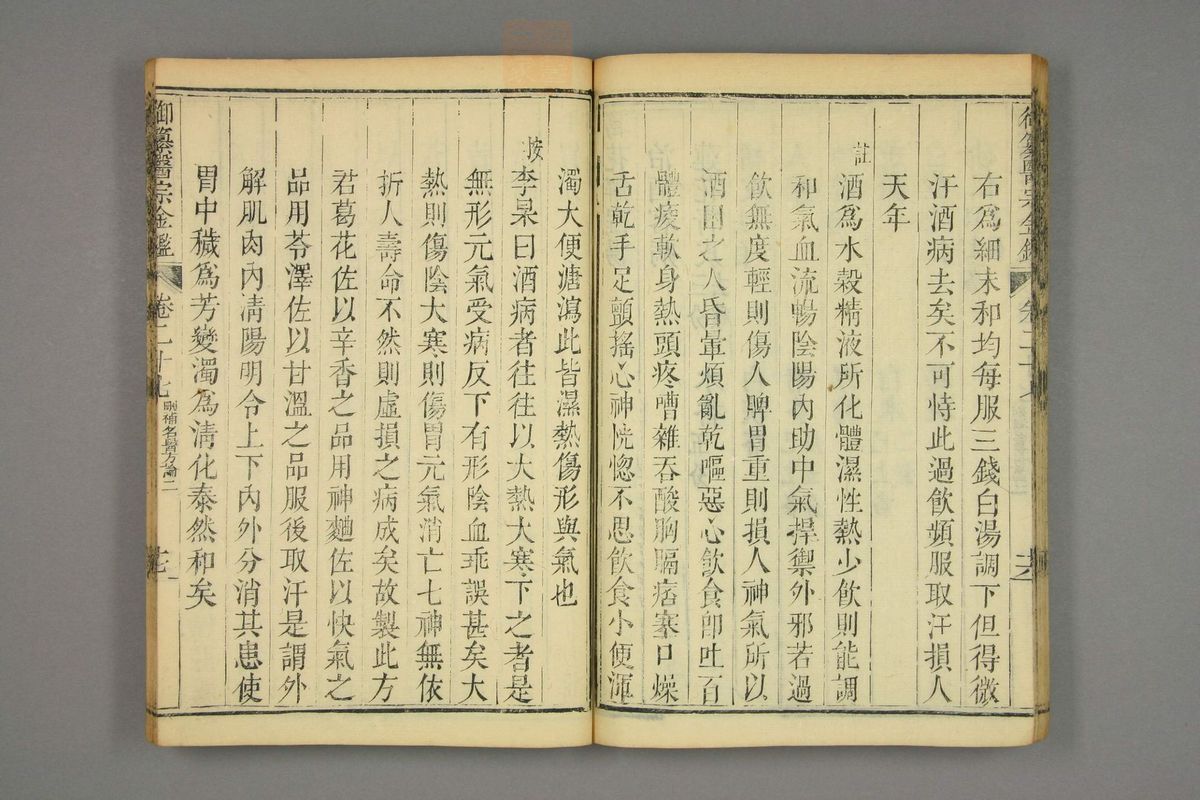 右爲細末和均每服三錢白湯調下但得微
汗酒病去矣不可恃此過飲頻服取汗損人
天年
註
酒爲水穀精液所化體濕性熱少飲則能調
和氣血流暢陰陽內助中氣捍禦外邪若過
飲無度輕則傷人脾胃重則損人神氣所以
酒困之人昏暈煩亂乾嘔惡心飲食卽吐百
體痠軟身熱頭疼嘈雜吞酸胸膈痞塞口燥
舌乾手足顫搖心神恍惚不思飲食小便渾
濁大便溏瀉此皆濕熱傷形與氣也
按
李杲曰酒病者往往以大熱大寒下之者是
無形元氣受病反下有形陰血乖誤甚矣大
熱則傷陰大寒則傷胃元氣消亡七神無依
折人壽命不然則虛損之病成矣故製此方
君葛花佐以辛香之品用神麯佐以快氣之
品用苓澤佐以甘溫之品服後取汗是謂外
解肌肉內淸陽明令上下內外分消其患使
胃中穢爲芳變濁爲淸化泰然和矣
御纂醫宗金鑑 卷二十七 刪補名醫方論二